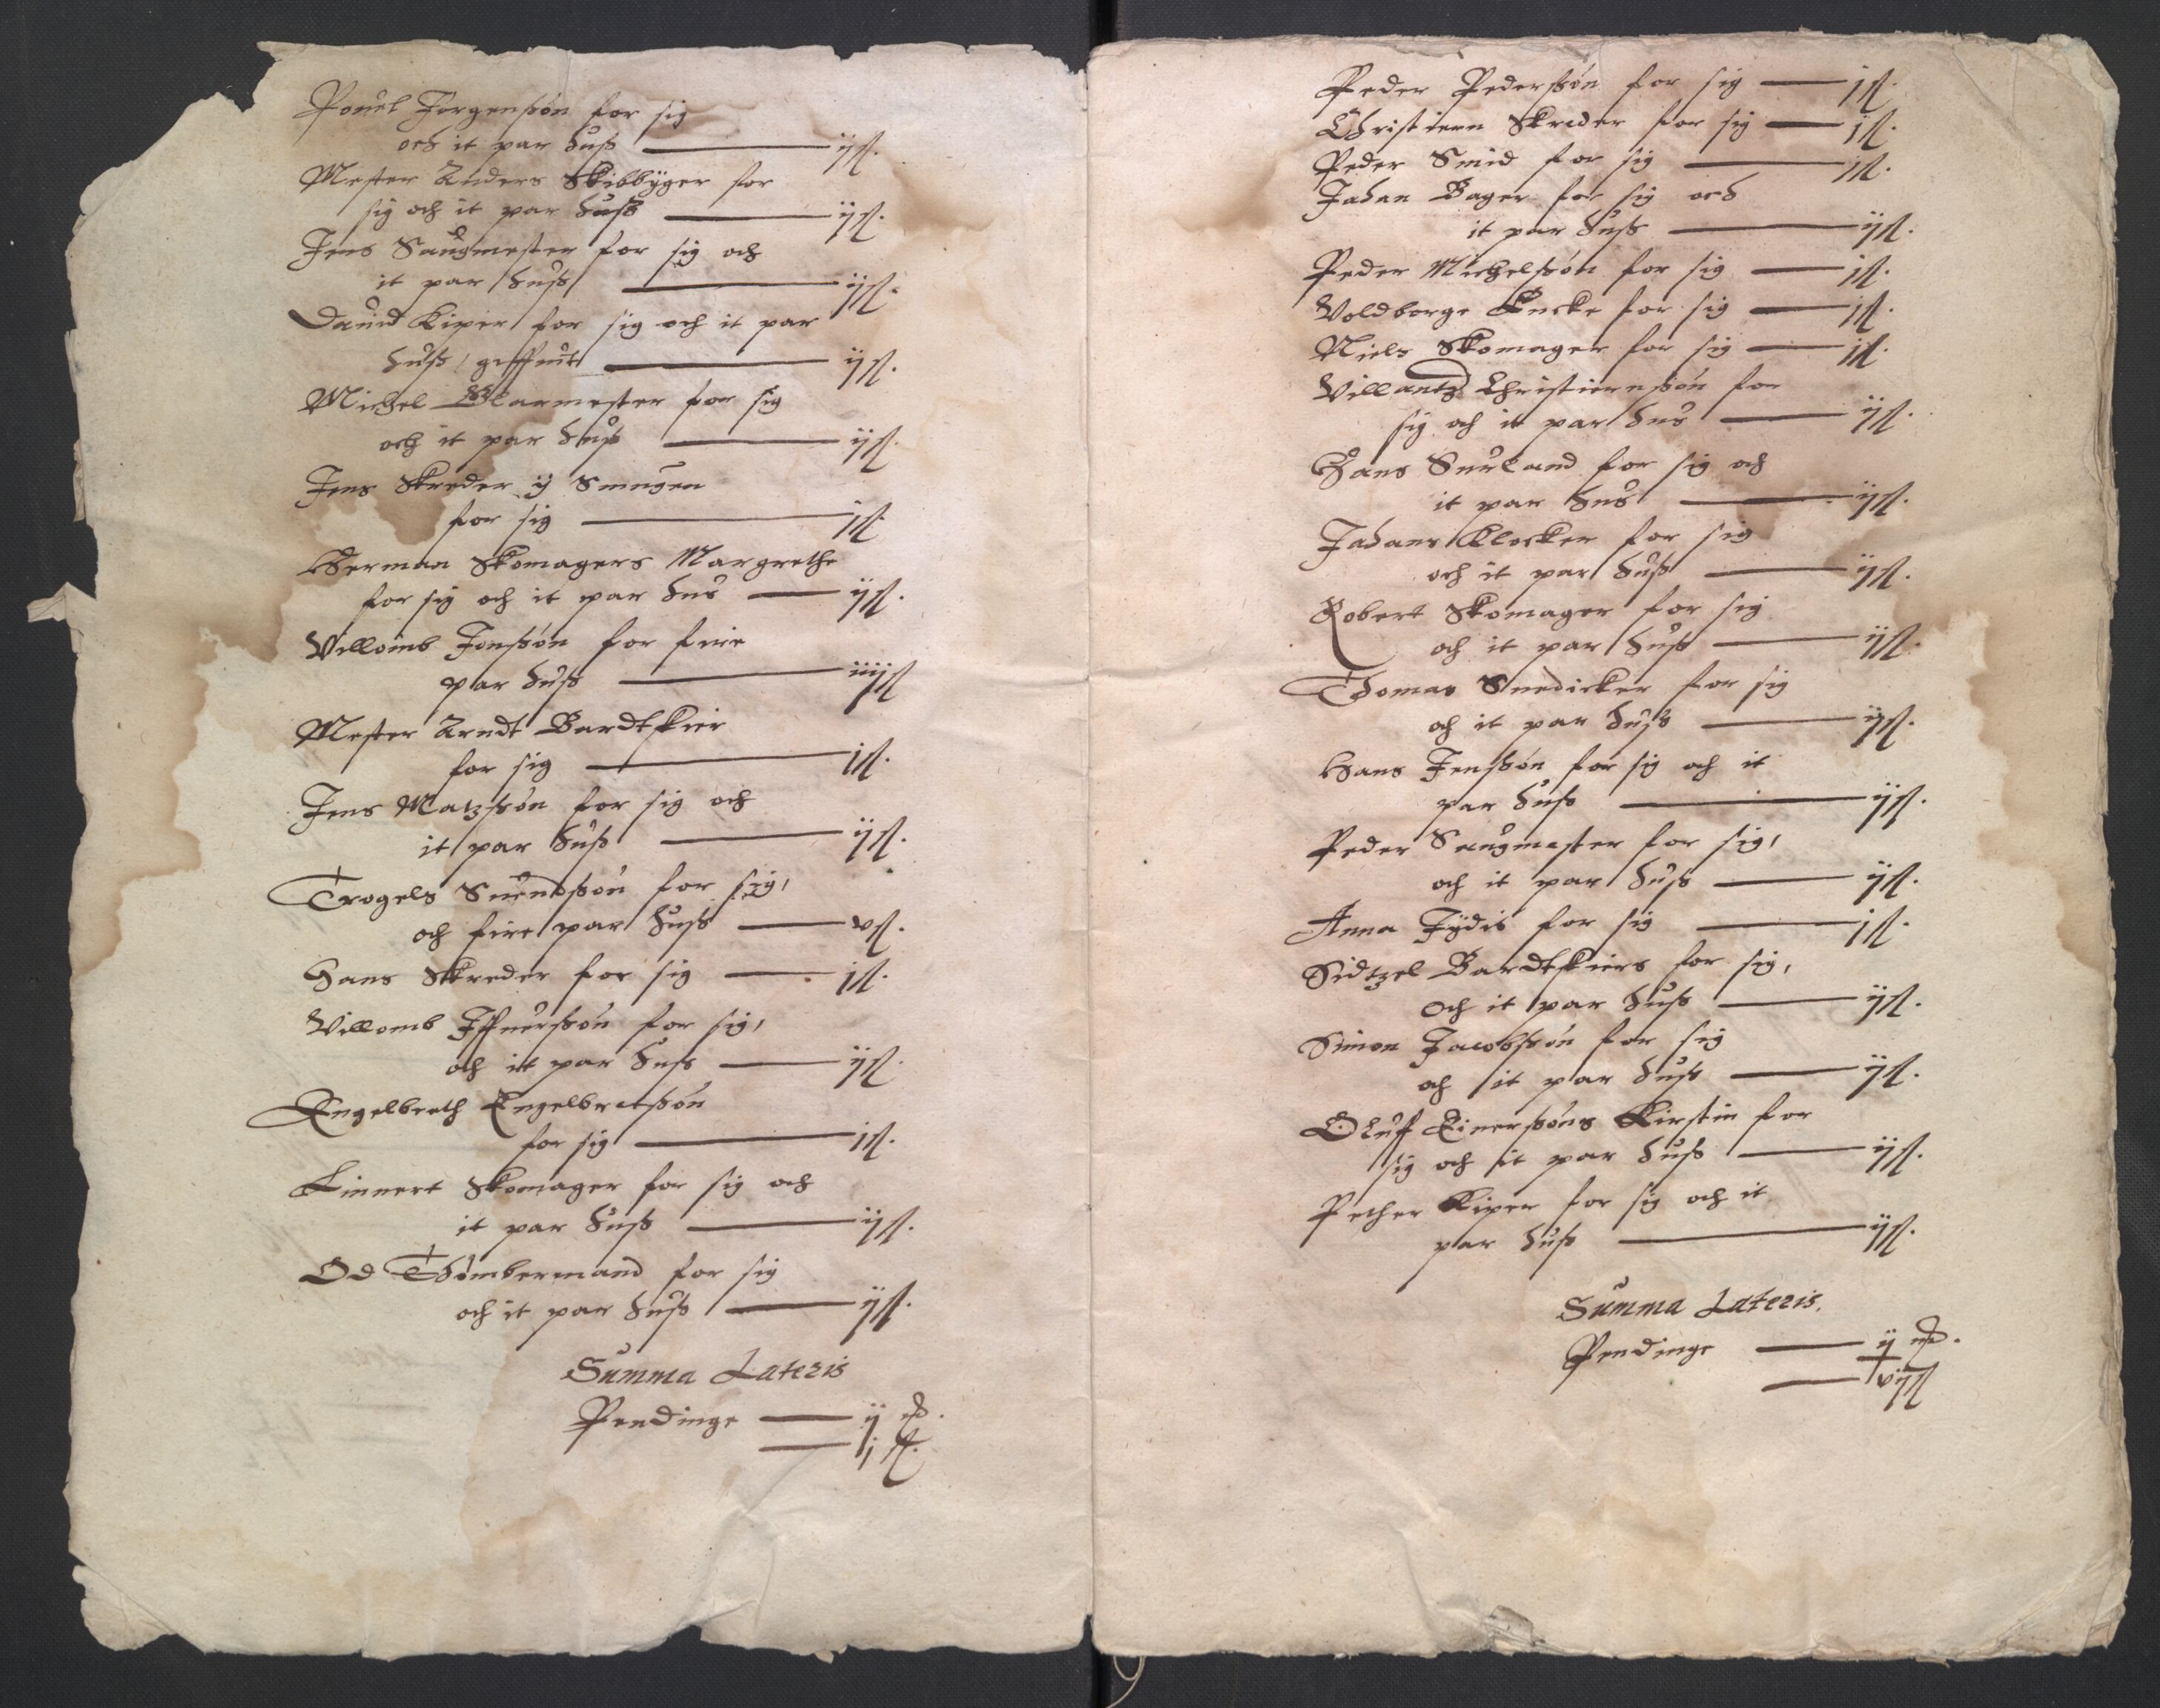 Pouel Jørgenssøn for sig
och it par huss ——— ij ß.
Mester Anders Skibbÿger for
sig och it par huss ——— ij ß.
Jens Saugmester for sig och
it par huss ——— ij ß.
Dauid Kiper for sig och it par
huss, geffuit ——— ij ß.
Michel Murmester for sig
och it par huss ——— ij ß.
Jens Skreder ÿ Smugen
for sig ——— j ß.
Herman Skomagers Margrethe
for sig och it par hus ——— ij ß.
Villomb Jonssøn for fire
par huss ——— iiij ß
Mester Arndt Bardtskier
for sig ——— j ß.
Jens Matzssøn for sig och
it par huss ——— ij ß.
Trogels Suendssøn for sig,
och fire par huss ——— v ß.
Hans Skreder for sig ——— j ß.
Villomb Iffuerssøn for sig,
och it par huss ——— ij ß.
Engelbreth Engelbretssøn
for sig ——— j ß.
Linnert Skomager for sig och
it par huss ——— ij ß.
Od Thømbermand for sig
och it par huss ——— ij ß.
Summa Lateris
Pendinge ——— ij
——— j ß.
Peder Pederssøn for sig ——— j ß.
Christiern Skreder for sig ——— j ß.
Peder Smid for sig ——— j ß.
Jahan Bager for sig och
it par huss ——— ij ß.
Peder Michelssøn for sig ——— j ß.
Voldborge Encke for sig ——— j ß.
Niels Skomager for sig ——— j ß.
Villantz Christiernssøn for
sig och it par hus ——— ij ß.
Hans Surland for sig och
it par hus ——— ij ß.
Jahans Klocker for sig
och it par huss ——— ij ß.
Robert Skomager for sig
och it par huss ——— ij ß.
Thomas Snedicker for sig
och it par huss ——— ij ß.
Hans Jenssøn for sig och it
par huss ——— ij ß.
Peder Saugmester for sig,
och it par huss ——— ij ß.
Anna Jÿdis for sig ——— j ß.
Sidtzel Bardtskiers for sig,
och it par huss ——— ij ß.
Simon Jacobssøn for sig
och it par huss ——— ij ß.
Oluf Einerssøns Kirstin for
sig och it par huss ——— ij ß.
Pether Kiper for sig och it
par huss ——— ij ß.
Summa Lateris.
Pendinge ——— ij
——— vij ß